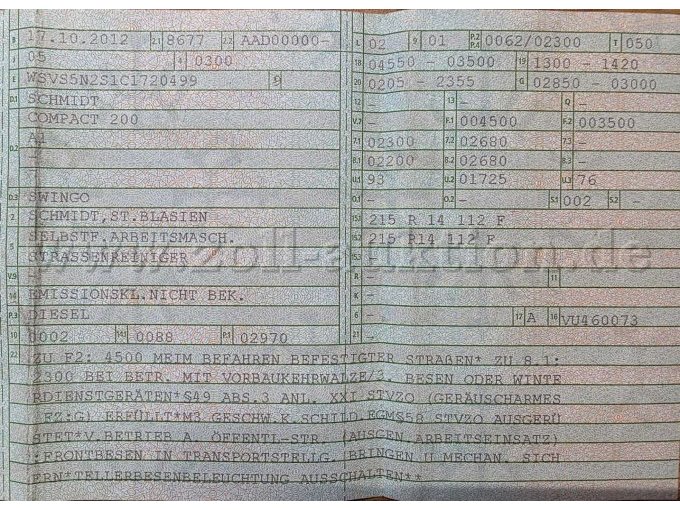 B 17.10.2012 2.1 8677 2.2 AAD00000-
J 05 4 0300
E WSVS5N2S1C1720499 3 9
D.1 SCHMIDT
COMPACT 200
D.2 A1
-
-
D.3 SWINGO
2 SCHMIDT,ST.BLASIEN
5 SELBSTF.ARBEITSMASCH.
STRASSENREINIGER
V.9 -
14 EMISSIONSKL.NICHT BEK.
P.3 DIESEL
10 0002 14.1 0088 P.1 02970
L 02 9 01 P.2 P.4 0062/02300 T 050
18 04550 - 03500 19 1300 - 1420
20 0205 - 2355 G 02850 - 03000
12 - 13 - Q -
V.7 - F.1 004500 F.2 003500
7.1 02300 7.2 02680 7.3 -
8.1 02200 8.2 02680 8.3 -
U.1 93 U.2 01725 U.3 76
O.1 - O.2 - S.1 002 S.2 -
15.1 215 R 14 112 F
15.2 215 R14 112 F
15.3 -
R - 11
K -
6 - 17 A 16 VU460073
21 -
22 ZU F2: 4500 MEIM BEFAHREN BEFESTIGTER STRAßEN* ZU 8.1:
2300 BEI BETR. MIT VORBAUKEHRWALZE/3. BESEN ODER WINTE
RDIENSTGERÄTEN*§49 ABS.3 ANL. XXI STVZO (GERÄUSCHARMES
FZ:G) ERFÜLLT*M3.GESCHW.K.SCHILD.EGMS58 STVZO AUSGERÜ
STET*V.BETRIEB A. ÖFFENTL-STR. (AUSGEN.ARBEITSEINSATZ)
:FRONTBESEN IN TRANSPORTSTELLG. BBINGEN U MECHAN. SICH
ERN*TELLERBESENBELEUCHTUNG AUSSCHALTEN**
www.zoll-auktion.de